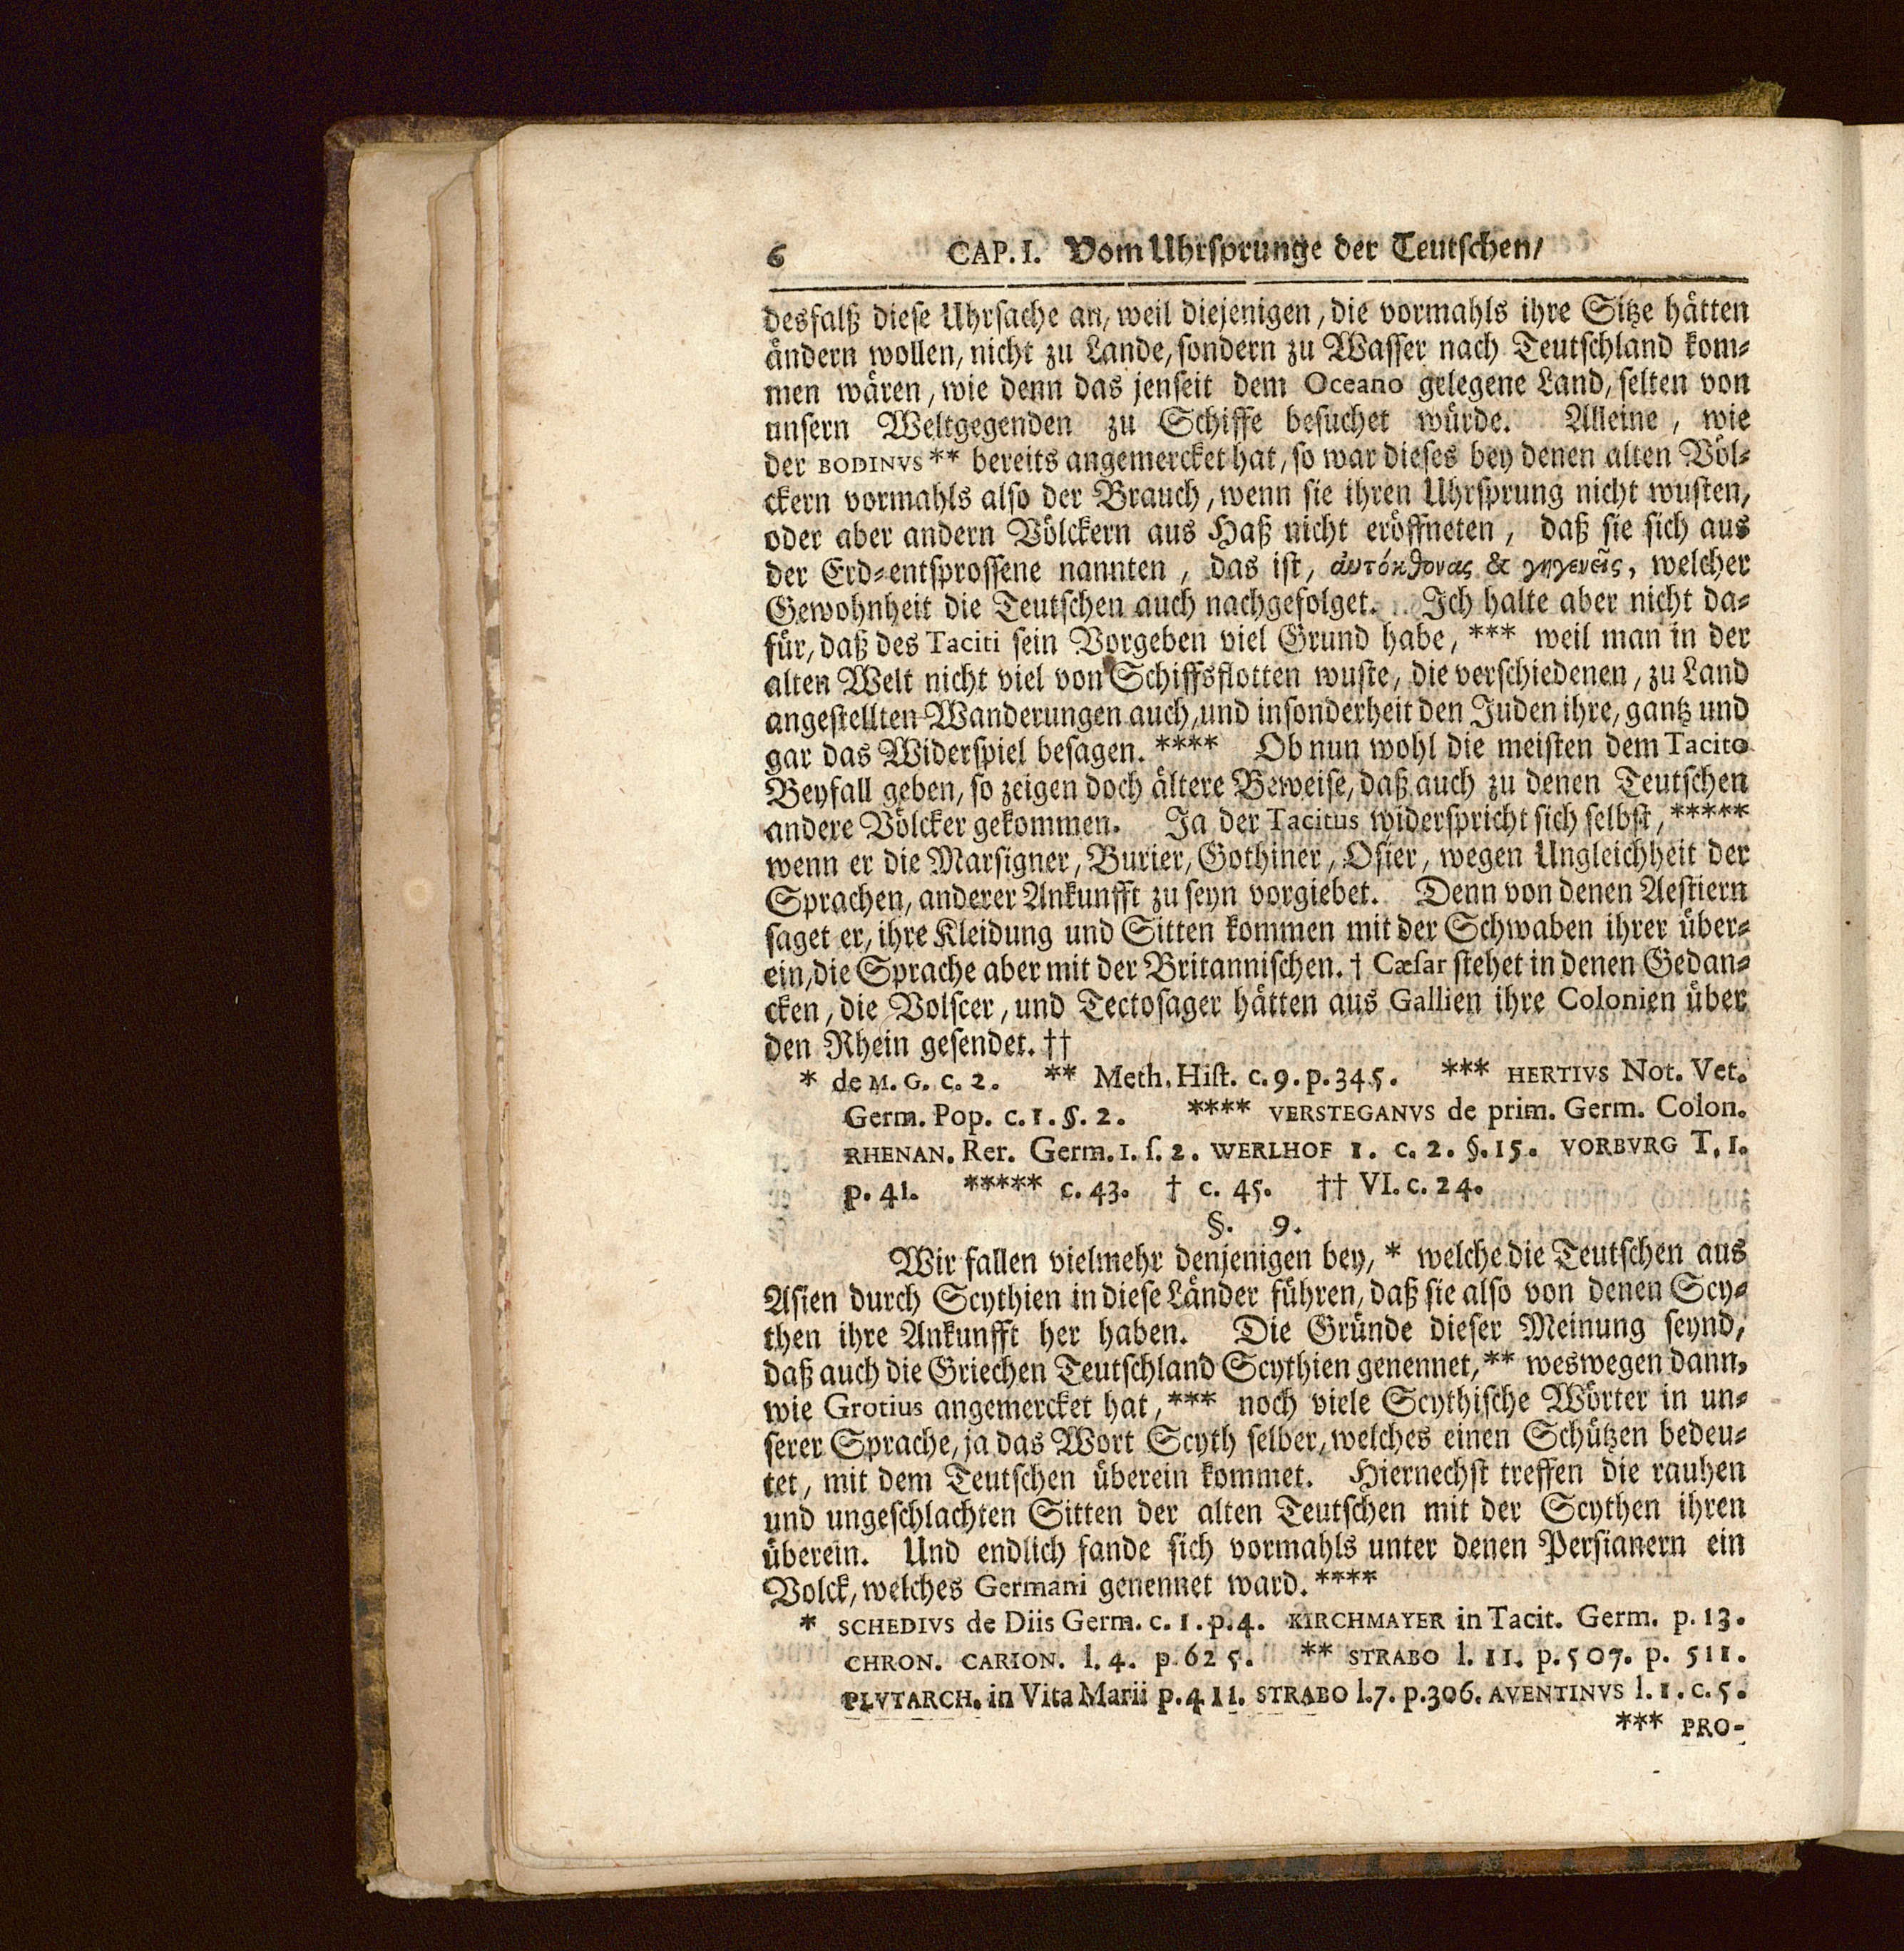 6 CAP. I. Vom Uhrsprunge der Teutschen/
desfalß diese Uhrsache an, weil diejenigen, die vormahls ihre Sitze hätten
ändern wollen, nicht zu Lande, sondern zu Wasser nach Teutschland kom-
men wären, wie denn das jenseit dem Oceano gelegene Land, selten von
unsern Weltgegenden zu Schiffe besuchet würde. Alleine, wie
der BODINVS ** bereits angemercket hat, so war dieses bey denen alten Völ-
ckern vormahls also der Brauch, wenn sie ihren Uhrsprung nicht wusten,
oder aber andern Völckern aus Haß nicht eröffneten, daß sie sich aus
der Erd-entsprossene nannten, das ist, ἀυτόκθονας & γηγενεῖς, welcher
Gewohnheit die Teutschen auch nachgefolget. Ich halte aber nicht da-
für, daß des Taciti sein Vorgeben viel Grund habe, *** weil man in der
alten Welt nicht viel von Schiffsflotten wuste, die verschiedenen, zu Land
angestellten Wanderungen auch, und insonderheit den Juden ihre, gantz und
gar das Widerspiel besagen. **** Ob nun wohl die meisten dem Tacito
Beyfall geben, so zeigen doch ältere Beweise, daß auch zu denen Teutschen
andere Völcker gekommen. Ja der Tacitus widerspricht sich selbst, *****
wenn er die Marsigner, Burier, Gothiner, Osier, wegen Ungleichheit der
Sprachen, anderer Ankunfft zu seyn vorgiebet. Denn von denen Aestiern
saget er, ihre Kleidung und Sitten kommen mit der Schwaben ihrer über-
ein, die Sprache aber mit der Britannischen. † Cæsar stehet in denen Gedan-
cken, die Volscer, und Tectosager hätten aus Gallien ihre Colonien über
den Rhein gesendet. ††
* de M. G. c. 2. ** Meth. Hist. c. 9. p. 345. *** HERTIVS Not. Vet.
Germ. Pop. c. 1. §. 2. **** VERSTEGANVS de prim. Germ. Colon.
RHENAN. Rer. Germ. 1. f. 2. WERLHOF 1. c. 2. §. 15. VORBVRG T. 1.
p. 41. ***** c. 43. † c. 45. †† VI. c. 24.
§. 9.
Wir fallen vielmehr denjenigen bey, * welche die Teutschen aus
Asien durch Scythien in diese Länder führen, daß sie also von denen Scy-
then ihre Ankunfft her haben. Die Gründe dieser Meinung seynd,
daß auch die Griechen Teutschland Scythien genennet, ** weswegen dann,
wie Grotius angemercket hat, *** noch viele Scythische Wörter in un-
serer Sprache, ja das Wort Scyth selber, welches einen Schützen bedeu-
tet, mit dem Teutschen überein kommet. Hiernechst treffen die rauhen
und ungeschlachten Sitten der alten Teutschen mit der Scythen ihren
überein. Und endlich fande sich vormahls unter denen Persianern ein
Volck, welches Germani genennet ward. ****
* SCHEDIVS de Diis Germ. c. 1. p. 4. KIRCHMAYER in Tacit. Germ. p. 13.
CHRON. CARION. l. 4. p. 625. ** STRABO l. 11. p. 507. p. 511.
PLVTARCH. in Vita Marii p. 411. STRABO l. 7. p. 306. AVENTINVS l. 1. c. 5.
*** PRO-